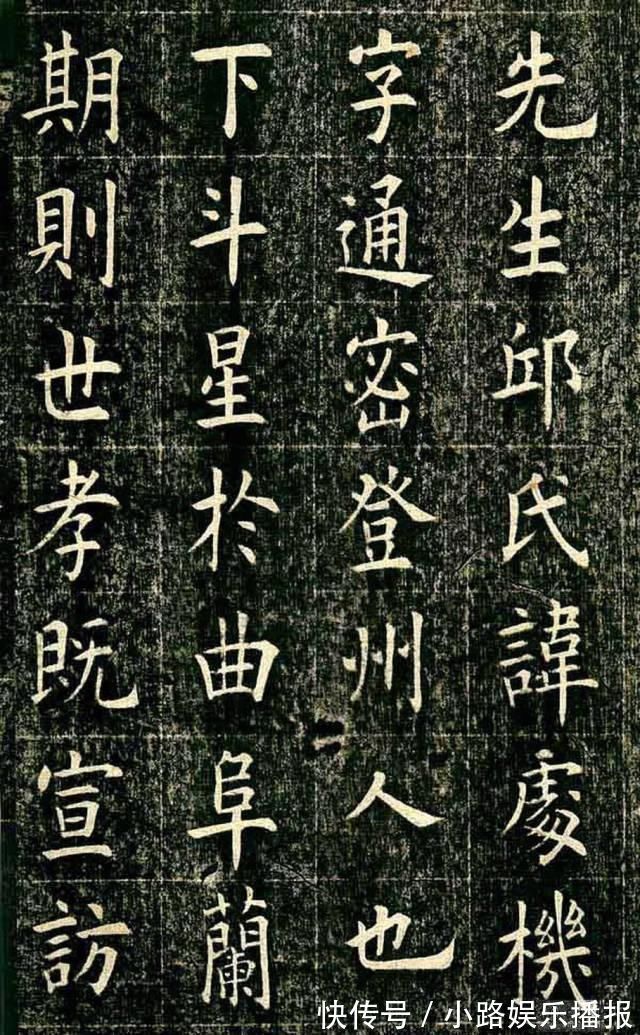 先生邱氏諱處機
字通密登州人也
下斗星於曲阜蘭
期則世孝既宣訪
快传号 / 小路娱乐播报